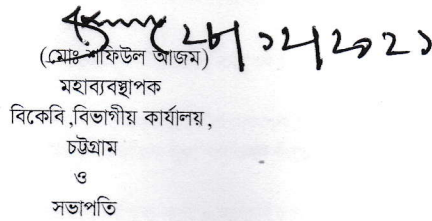 ২৮/১২/২০২১
(মোঃ শফিউল আজম)
মহাব্যবস্থাপক
বিকেবি,বিভাগীয় কার্যালয়,
চট্টগ্রাম
ও
সভাপতি